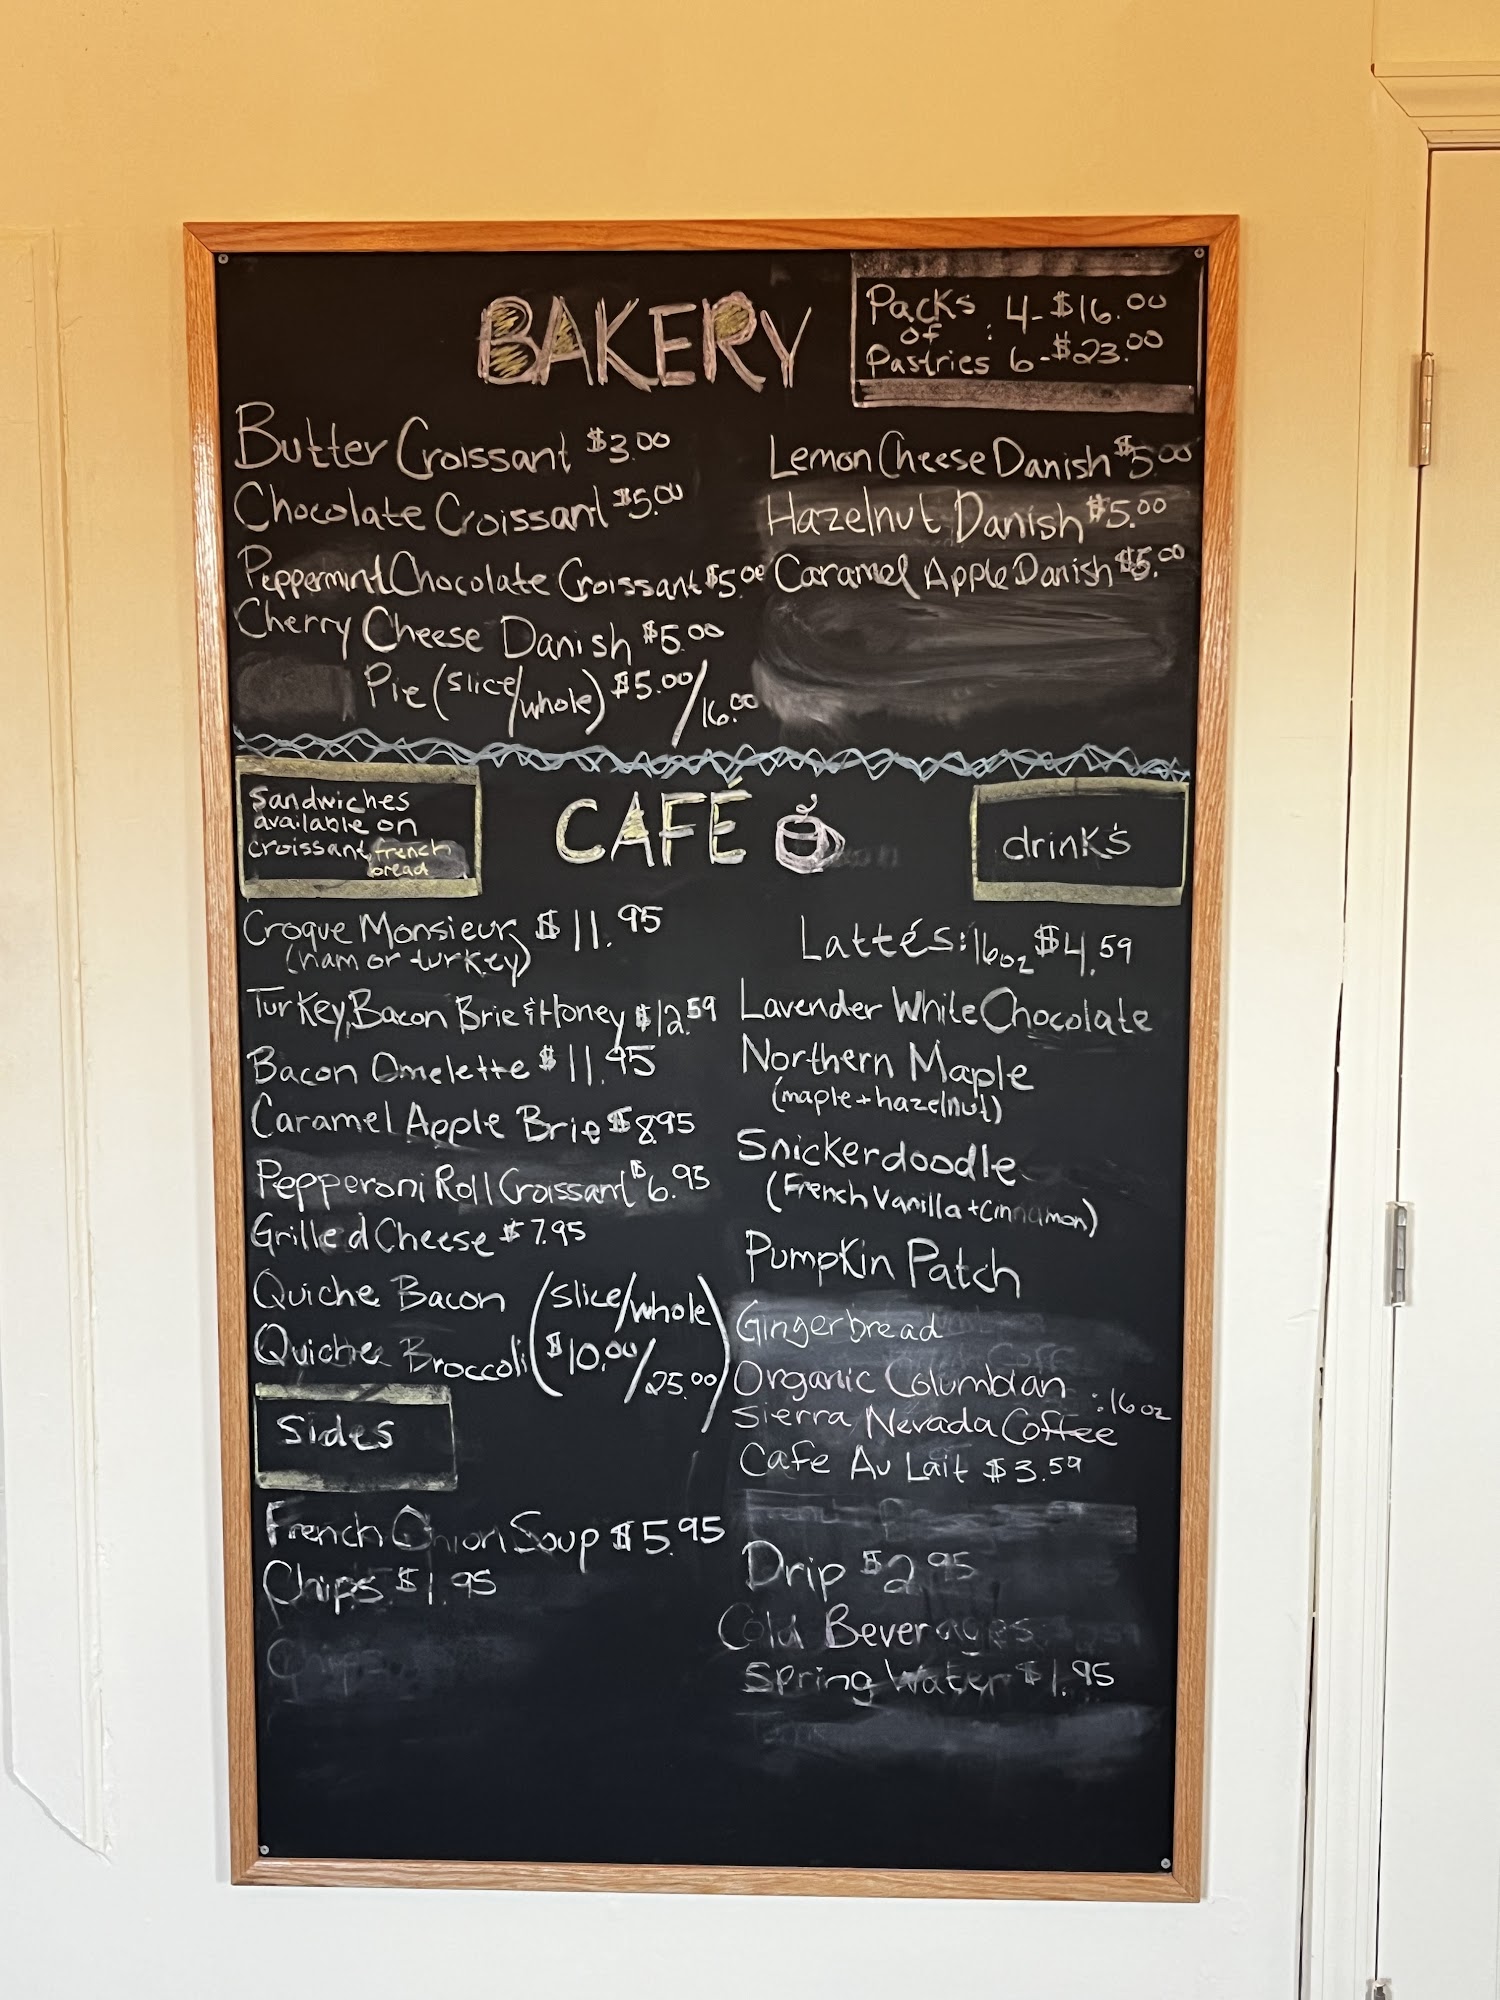 BAKERY
Packs of Pastries : 4-$16.00
6-$23.00
Butter Croissant $3.00
Chocolate Croissant $5.00
Peppermint Chocolate Croissant $5.00
Cherry Cheese Danish $5.00
Pie (slice/whole) $5.00/16.00
Lemon Cheese Danish $5.00
Hazelnut Danish $5.00
Caramel Apple Danish $5.00
CAFÉ
Sandwiches
available on
croissant, french
bread
Croque Monsieur $11.95
(ham or turkey)
Turkey, Bacon Brie & Honey $12.59
Bacon Omelette $11.95
Caramel Apple Brie $8.95
Pepperoni Roll Croissant $6.95
Grilled Cheese $7.95
Quiche Bacon (slice/whole)
Quiche Broccoli ($10.00/25.00)
Sides
French Onion Soup $5.95
Chips $1.95
Chips
drinks
Lattés: 16oz $4.59
Lavender White Chocolate
Northern Maple
(maple + hazelnut)
Snickerdoodle
(French Vanilla + Cinnamon)
Pumpkin Patch
Gingerbread
Organic Columbian
Sierra Nevada Coffee : 16oz
Cafe Au Lait $3.59
Drip $2.95
Cold Beverages
Spring Water $1.95